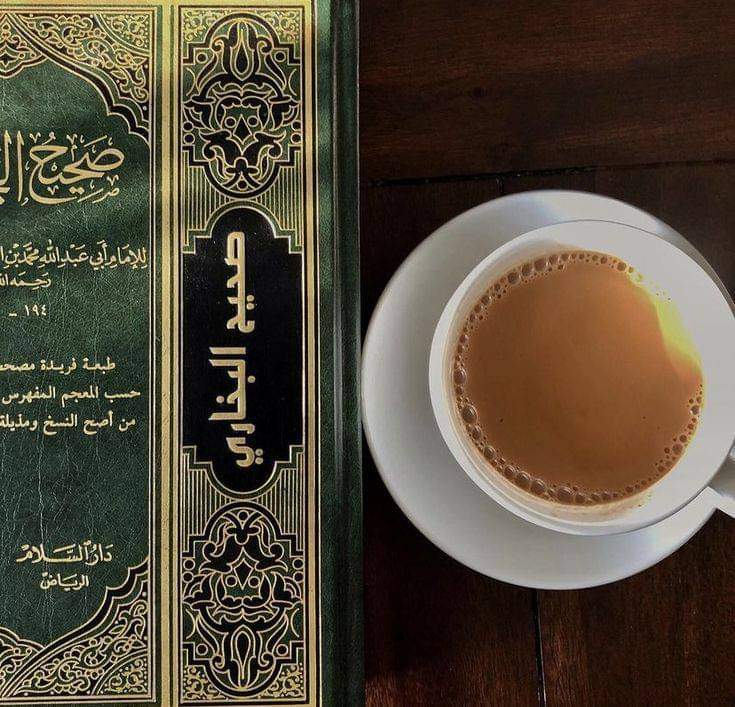 صَحِيحُ
للإمَامِ أبي عَبدِ اللهِ محمَّد بْنِ
رَحِمَهُ الله
١٩٤ -
طبعة فريدة مصحح
حسب المعجم المفهرس
من أصح النسخ ومذيلة
دَارُ السَّلَام
الريَاض
صحيح البخاري